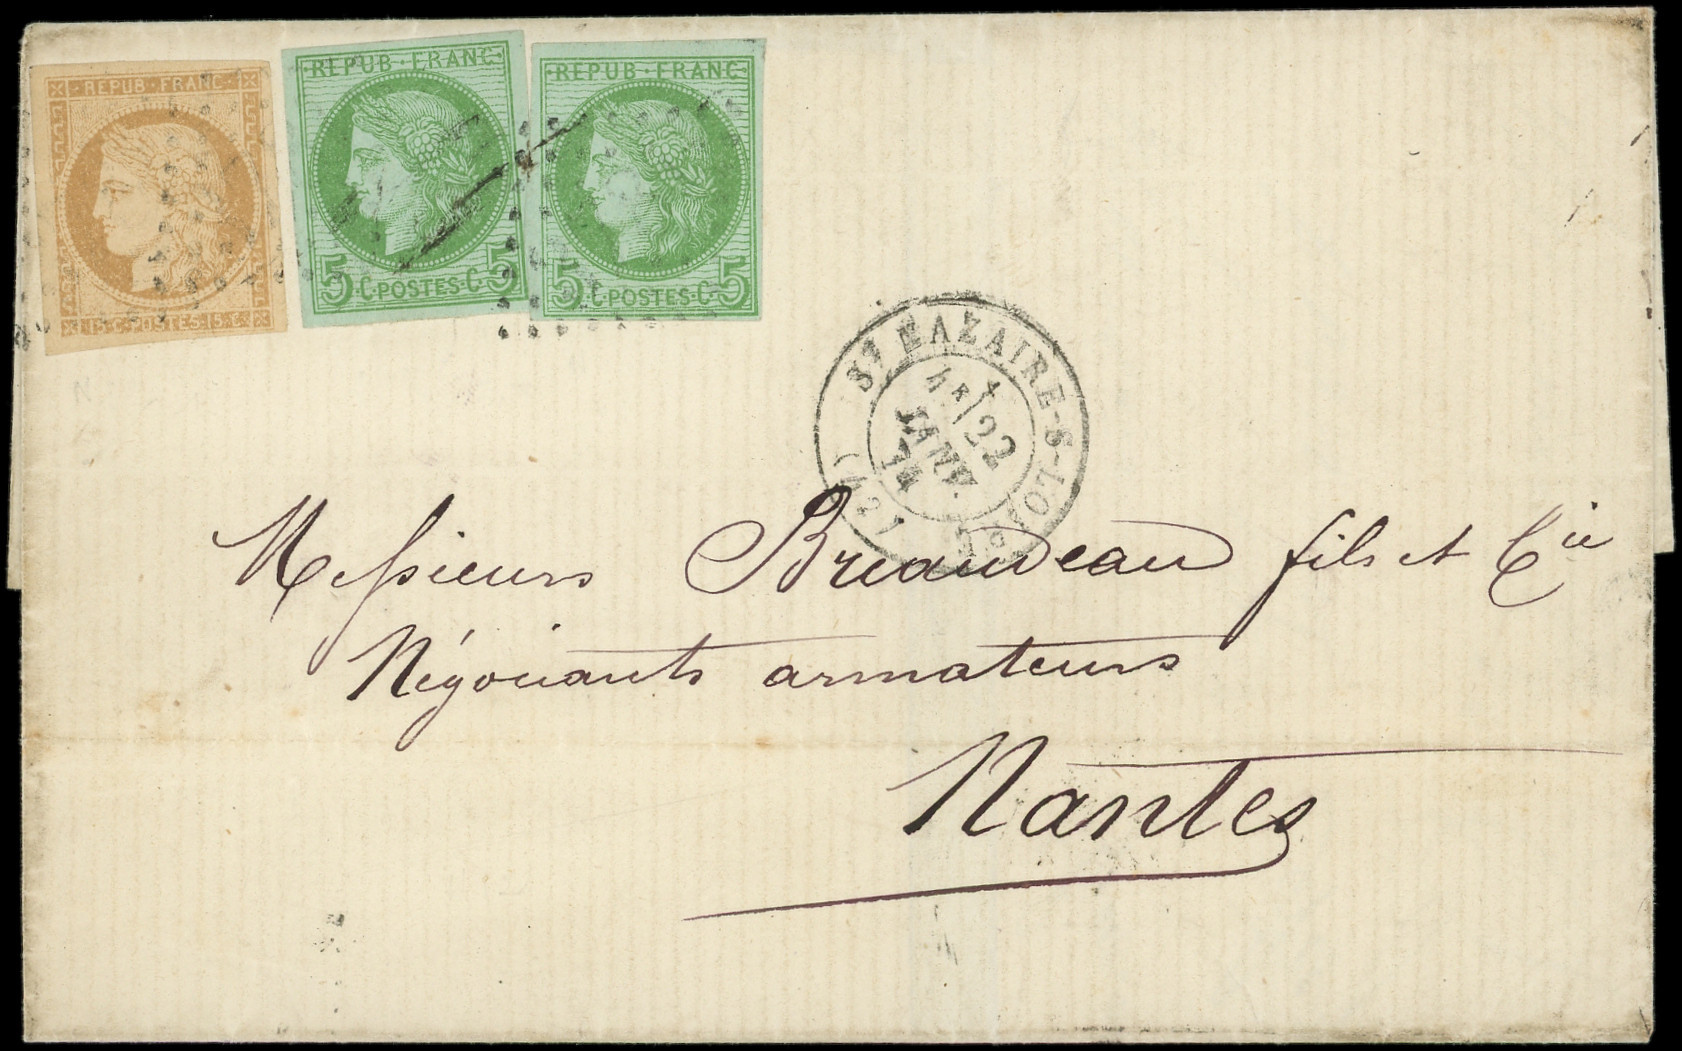 REPUB·FRANC
15·C·POSTES·15·C
·REPUB·FRANC·
5·C·POSTES·C·5
·REPUB·FRANC·
5·C·POSTES·C·5
ST NAZAIRE-S-LOIRE
4E/
22
JANV.
74
Messieurs Briaudeau fils et Cie
Négociants armateurs
Nantes